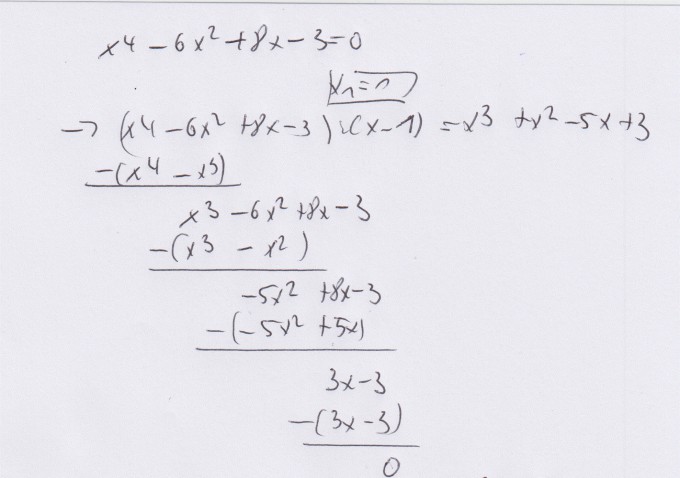 x4 - 6x² + 8x - 3 = 0
x₁ = 1
→ (x4 - 6x² + 8x - 3) : (x - 1) = x3 + x² - 5x + 3
-(x4 - x3)
x3 - 6x² + 8x - 3
-(x3 - x²)
-5x² + 8x - 3
-(-5x² + 5x)
3x - 3
-(3x - 3)
0